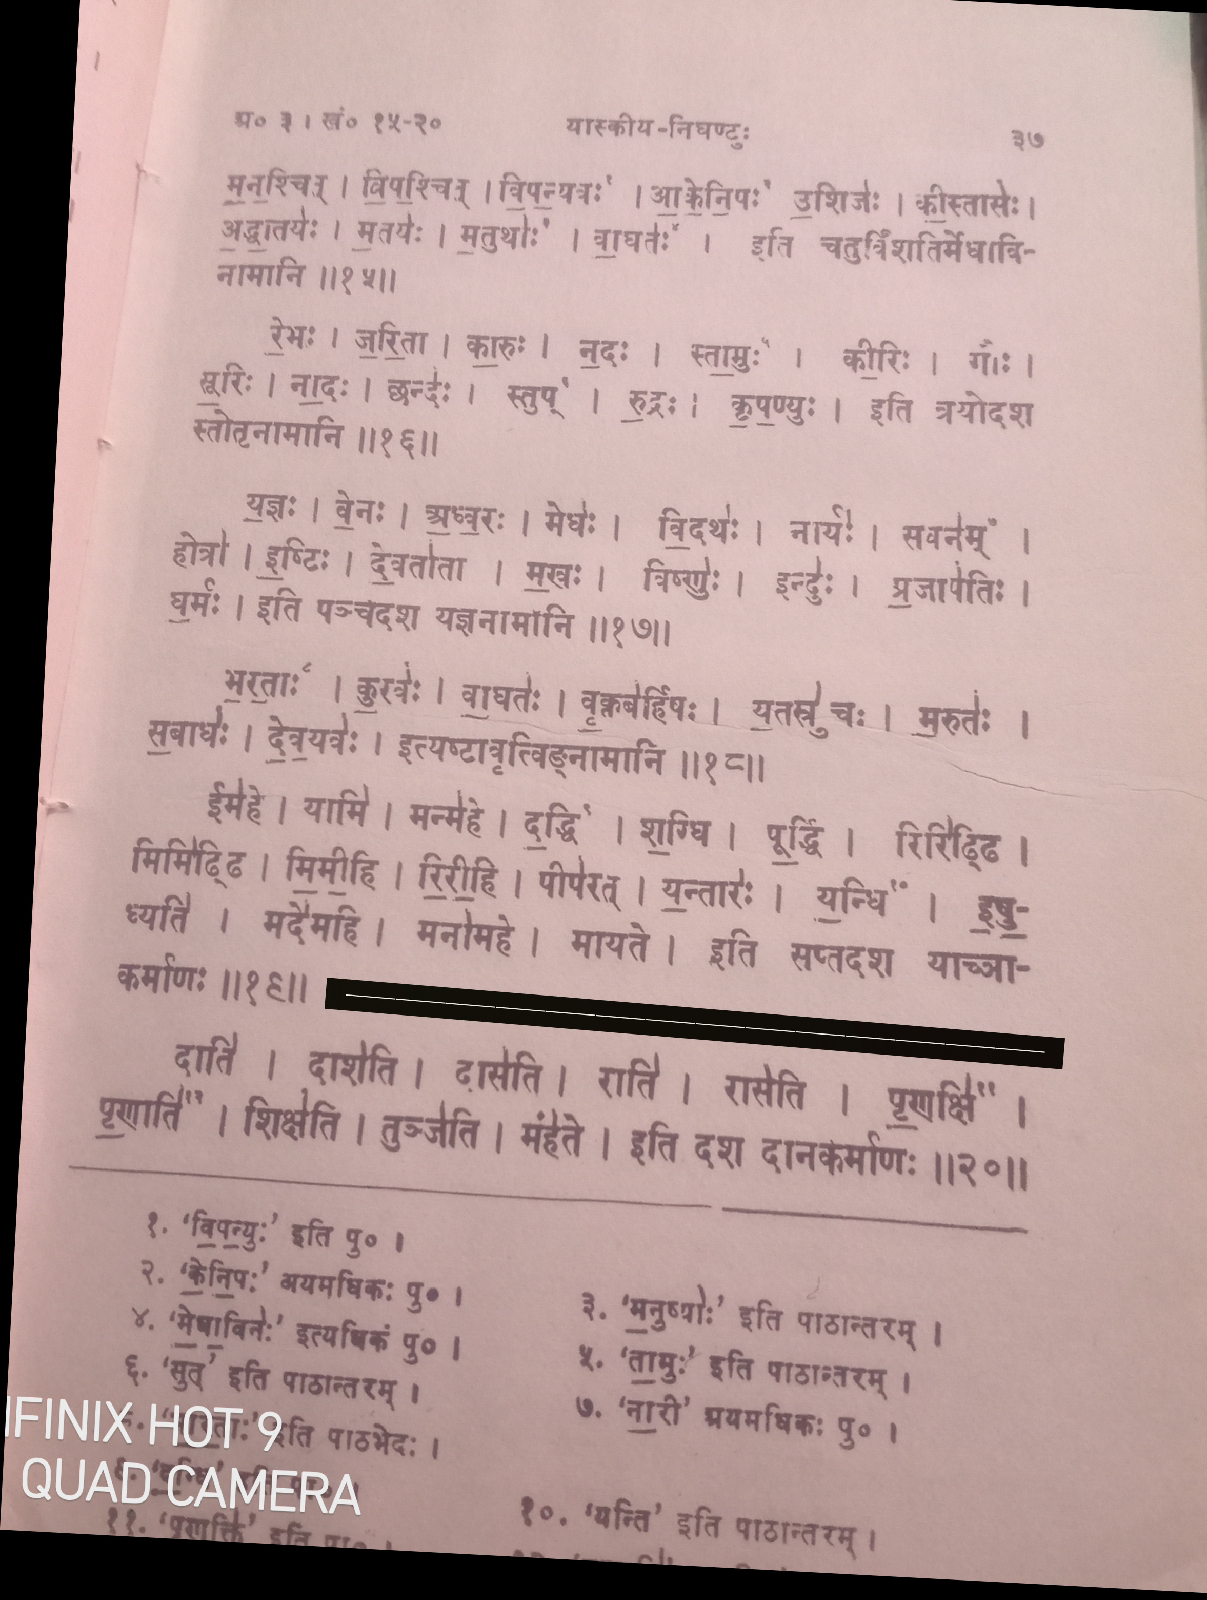 अ० ३ । खं० १५-२० यास्कीय-निघण्टुः ३७
म॒न॒श्चित् । वि॒प॒श्चित् । वि॒प॒न्यवः॑¹ । आ॒के॒नि॒पः² उ॒शिजः॑ । की॒स्तासः॑ ।
अ॒द्धा॒तयः॑ । म॒तयः॑ । म॒तुथाः॑³ । वा॒घतः॑⁴ । इति चतुर्विंशतिर्मेधावि-
नामानि ॥१५॥
रे॒भः । ज॒रि॒ता । का॒रुः । न॒दः । स्ता॒मुः⁵ । की॒रिः । गौः ।
सू॒रिः । ना॒दः । छन्दः॑ । स्तुप्⁶ । रु॒द्रः । कृ॒प॒ण्युः । इति त्रयोदश
स्तोतृनामानि ॥१६॥
य॒ज्ञः । वे॒नः । अ॒ध्व॒रः । मेधः॑ । वि॒दथः॑ । नार्यः॑ । सव॑नम्⁷ ।
होत्रा॑ । इ॒ष्टिः । दे॒वता॑ता । म॒खः । विष्णुः॑ । इन्दुः॑ । प्र॒जाप॑तिः ।
घ॒र्मः । इति पञ्चदश यज्ञनामानि ॥१७॥
भ॒र॒ताः⁸ । कु॒रवः॑ । वा॒घतः॑ । वृ॒क्तब॑र्हिषः । य॒तस्रु॑चः । म॒रुतः॑ ।
स॒बाधः॑ । दे॒व॒यवः॑ । इत्यष्टावृत्विङ्नामानि ॥१८॥
ईम॑हे । यामि॑ । मन्म॑हे । द॒द्धि⁹ । श॒ग्धि । पू॒र्द्धि । रिरि॑ढ्ढि ।
मिमि॑ढ्ढि । मि॒मी॒हि । रि॒री॒हि । पीप॑रत् । य॒न्तारः॑ । य॒न्धि¹⁰ । इ॒षु॒-
ध्यति॑ । मदे॑महि । मना॑महे । मायते । इति सप्तदश याच्ञा-
कर्माणः ॥१९॥
दाति॑ । दाश॑ति । दास॑ति । राति॑ । रास॑ति । पृ॒णक्षि॑¹¹ ।
पृ॒णाति॑¹² । शिक्ष॑ति । तुञ्ज॑ति । मंह॑ते । इति दश दानकर्माणः ॥२०॥
१. ‘वि॒प॒न्युः’ इति पु० ।
२. ‘के॒नि॒पः’ अयमधिकः पु० ।
३. ‘म॒नुष्याः॑’ इति पाठान्तरम् ।
४. ‘मे॒धा॒विनः॑’ इत्यधिकं पु० ।
५. ‘ता॒मुः’ इति पाठान्तरम् ।
६. ‘सुत्’ इति पाठान्तरम् ।
७. ‘ना॒री’ अयमधिकः पु० ।
इति पाठभेदः ।
१०. ‘यन्ति’ इति पाठान्तरम् ।
११. ‘पृणक्ति’ इति
INFINIX HOT 9
QUAD CAMERA